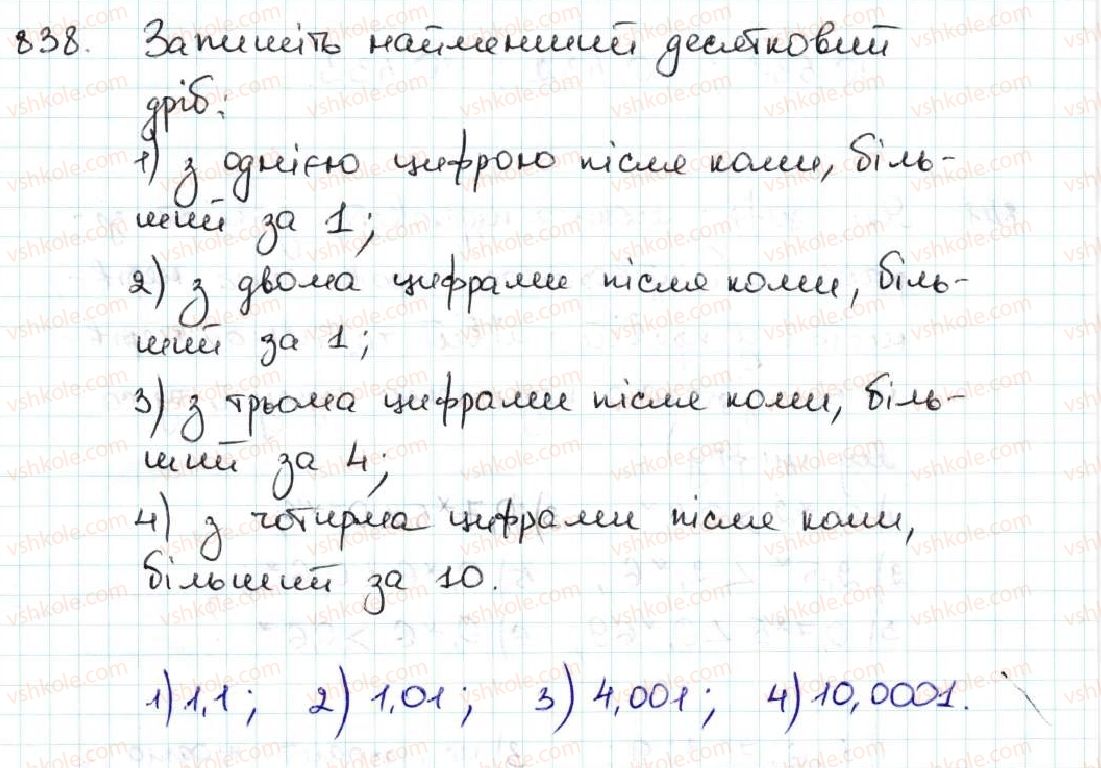 838. Запишіть найменший десятковий
дріб:
1) з однією цифрою після коми, біль-
ший за 1;
2) з двома цифрами після коми, біль-
ший за 1;
3) з трьома цифрами після коми, біль-
ший за 4;
4) з чотирма цифрами після коми,
більший за 10.
1) 1,1; 2) 1,01; 3) 4,001; 4) 10,0001.
vshkole.com